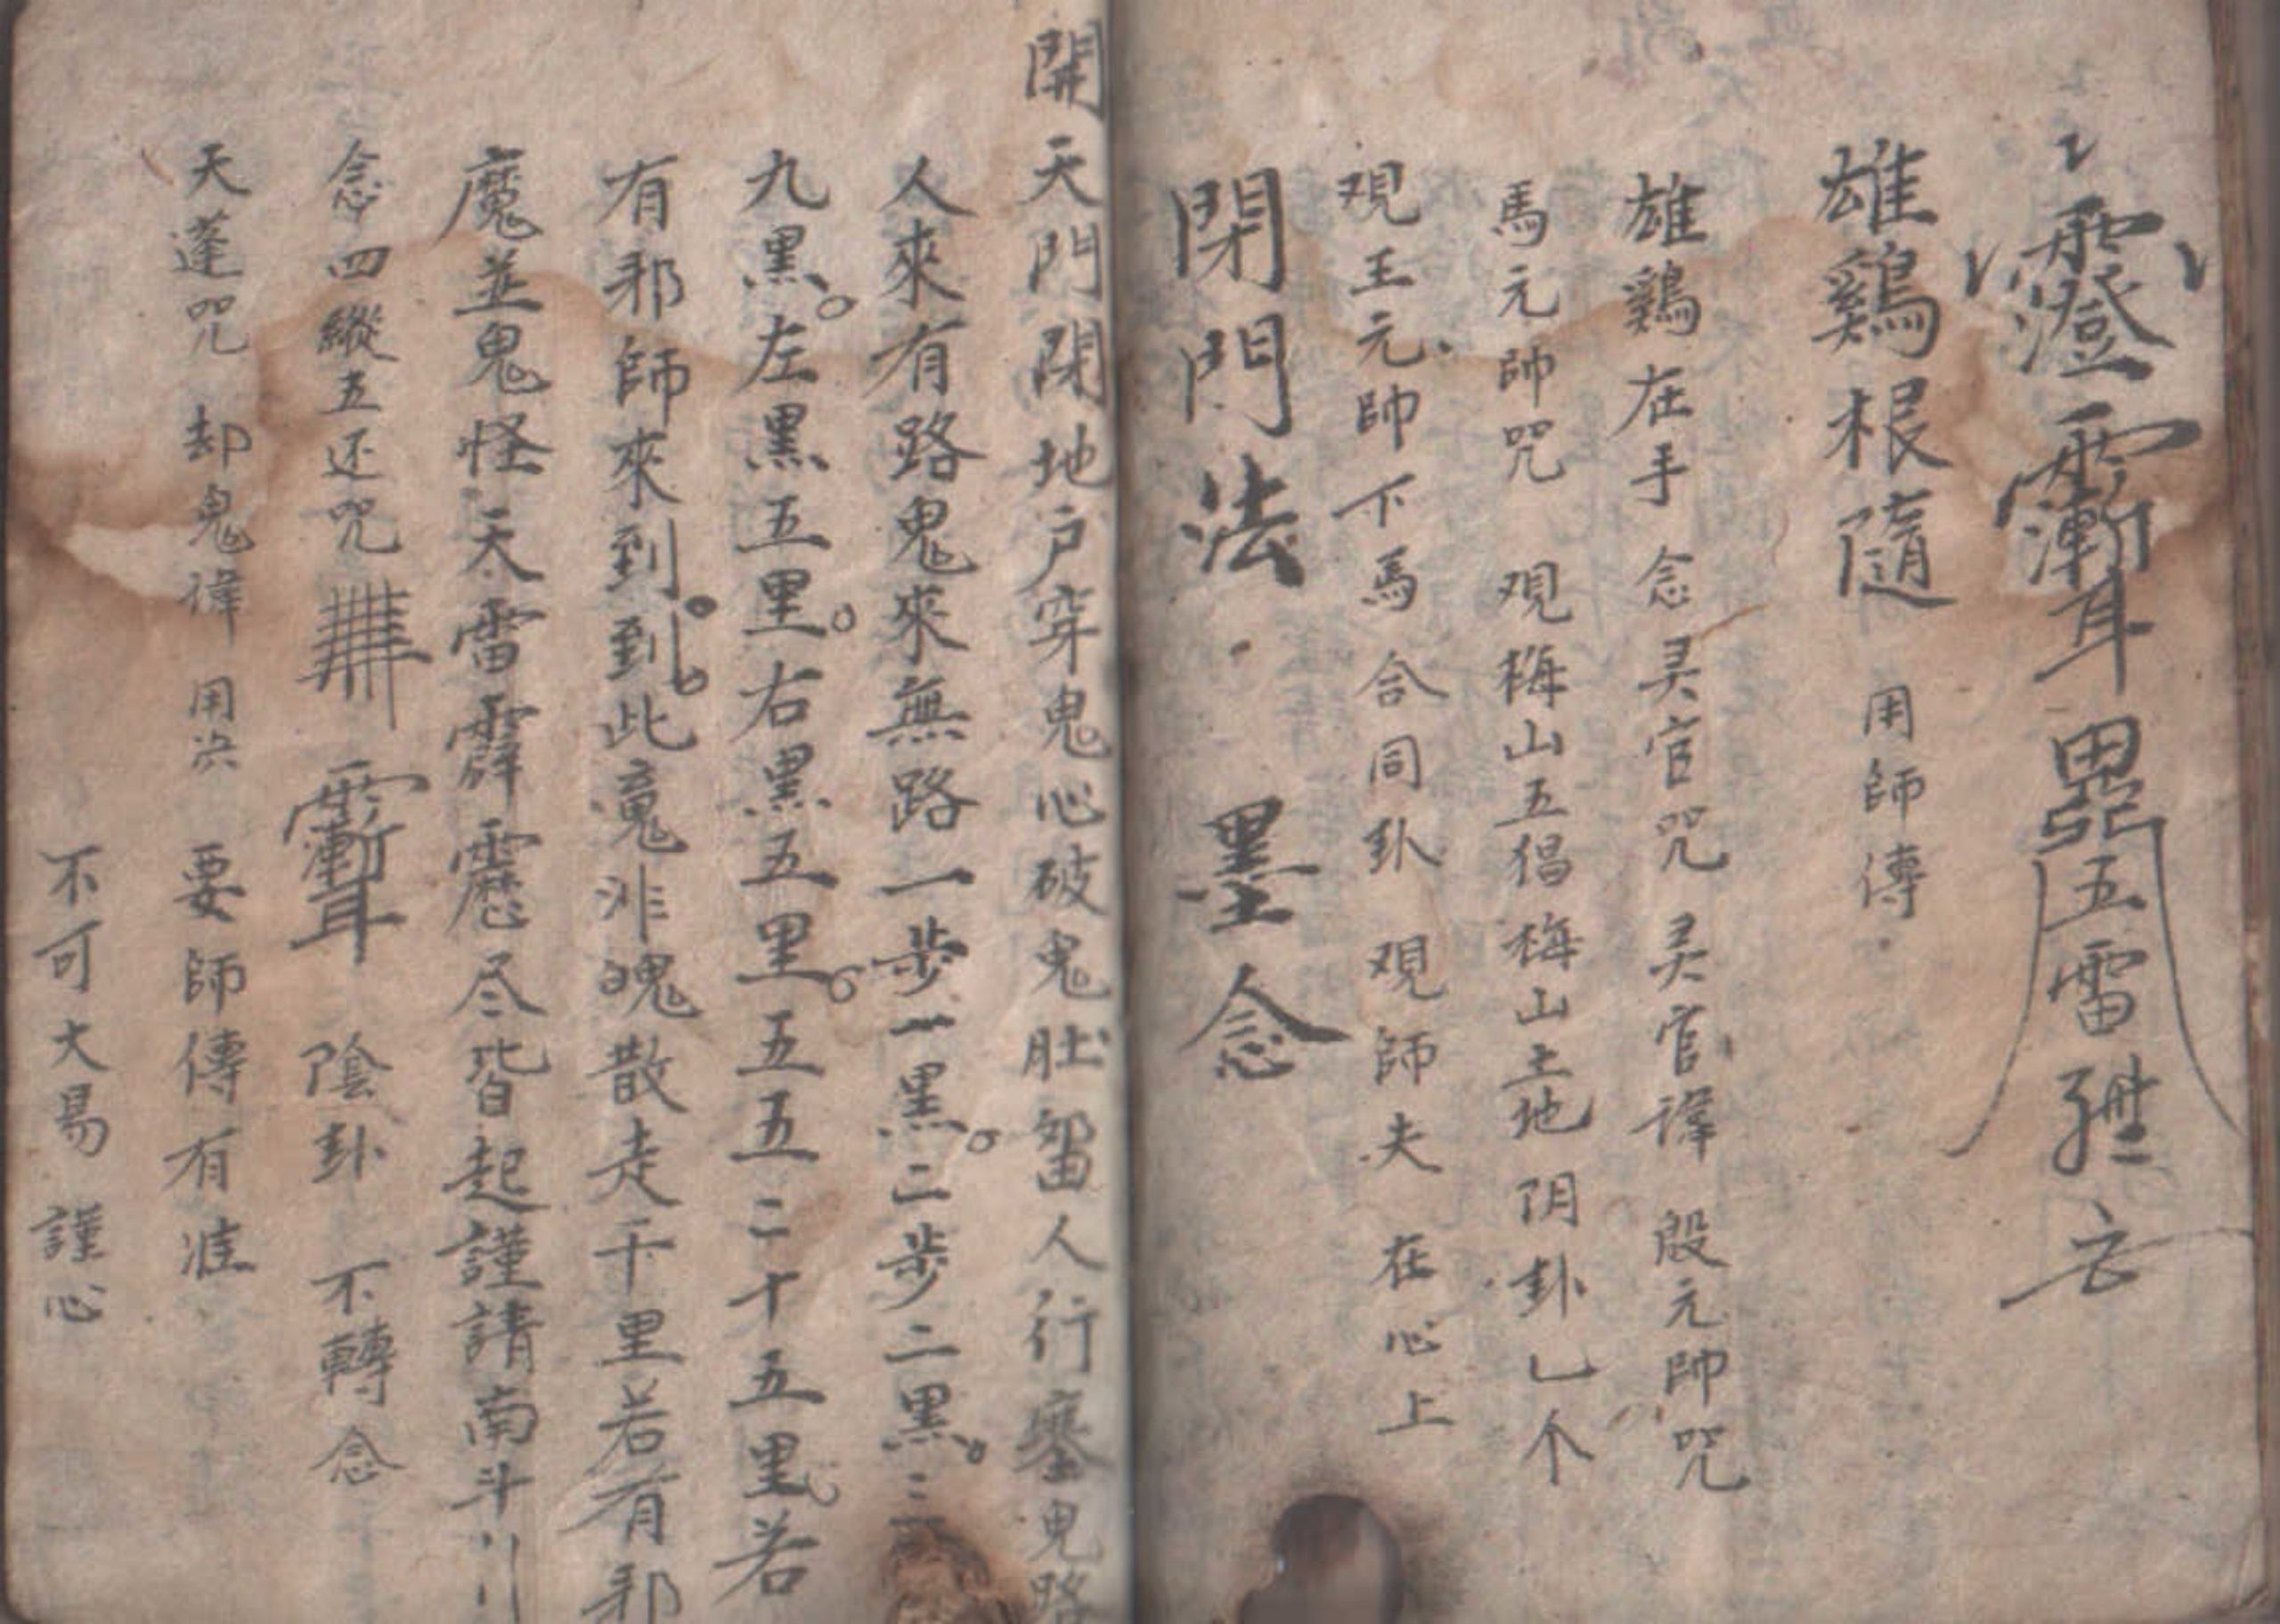 五雷 云
雄鷄根隨 用師傳
雄鷄在手 念灵官咒 灵官諱 殷元帥咒
馬元帥咒 观梅山五猖梅山土地 阴卦乚个
观王元帥下馬 合同卦 观師夫 在心上
閉門法 墨念
開天門閉地户穿鬼心破鬼肚畄人行塞鬼路
人來有路鬼來無路一步一黑二步二黑三
九黑左黑五里右黑五里五五二十五里若
有邪師來到到此魂非魄散走千里若有邪
魔並鬼怪天雷霹靂尽皆起謹請南斗
念四縱五还咒 陰卦 不轉念
天蓬咒 却鬼諱 用决 要師傳有准
不可大易 謹心